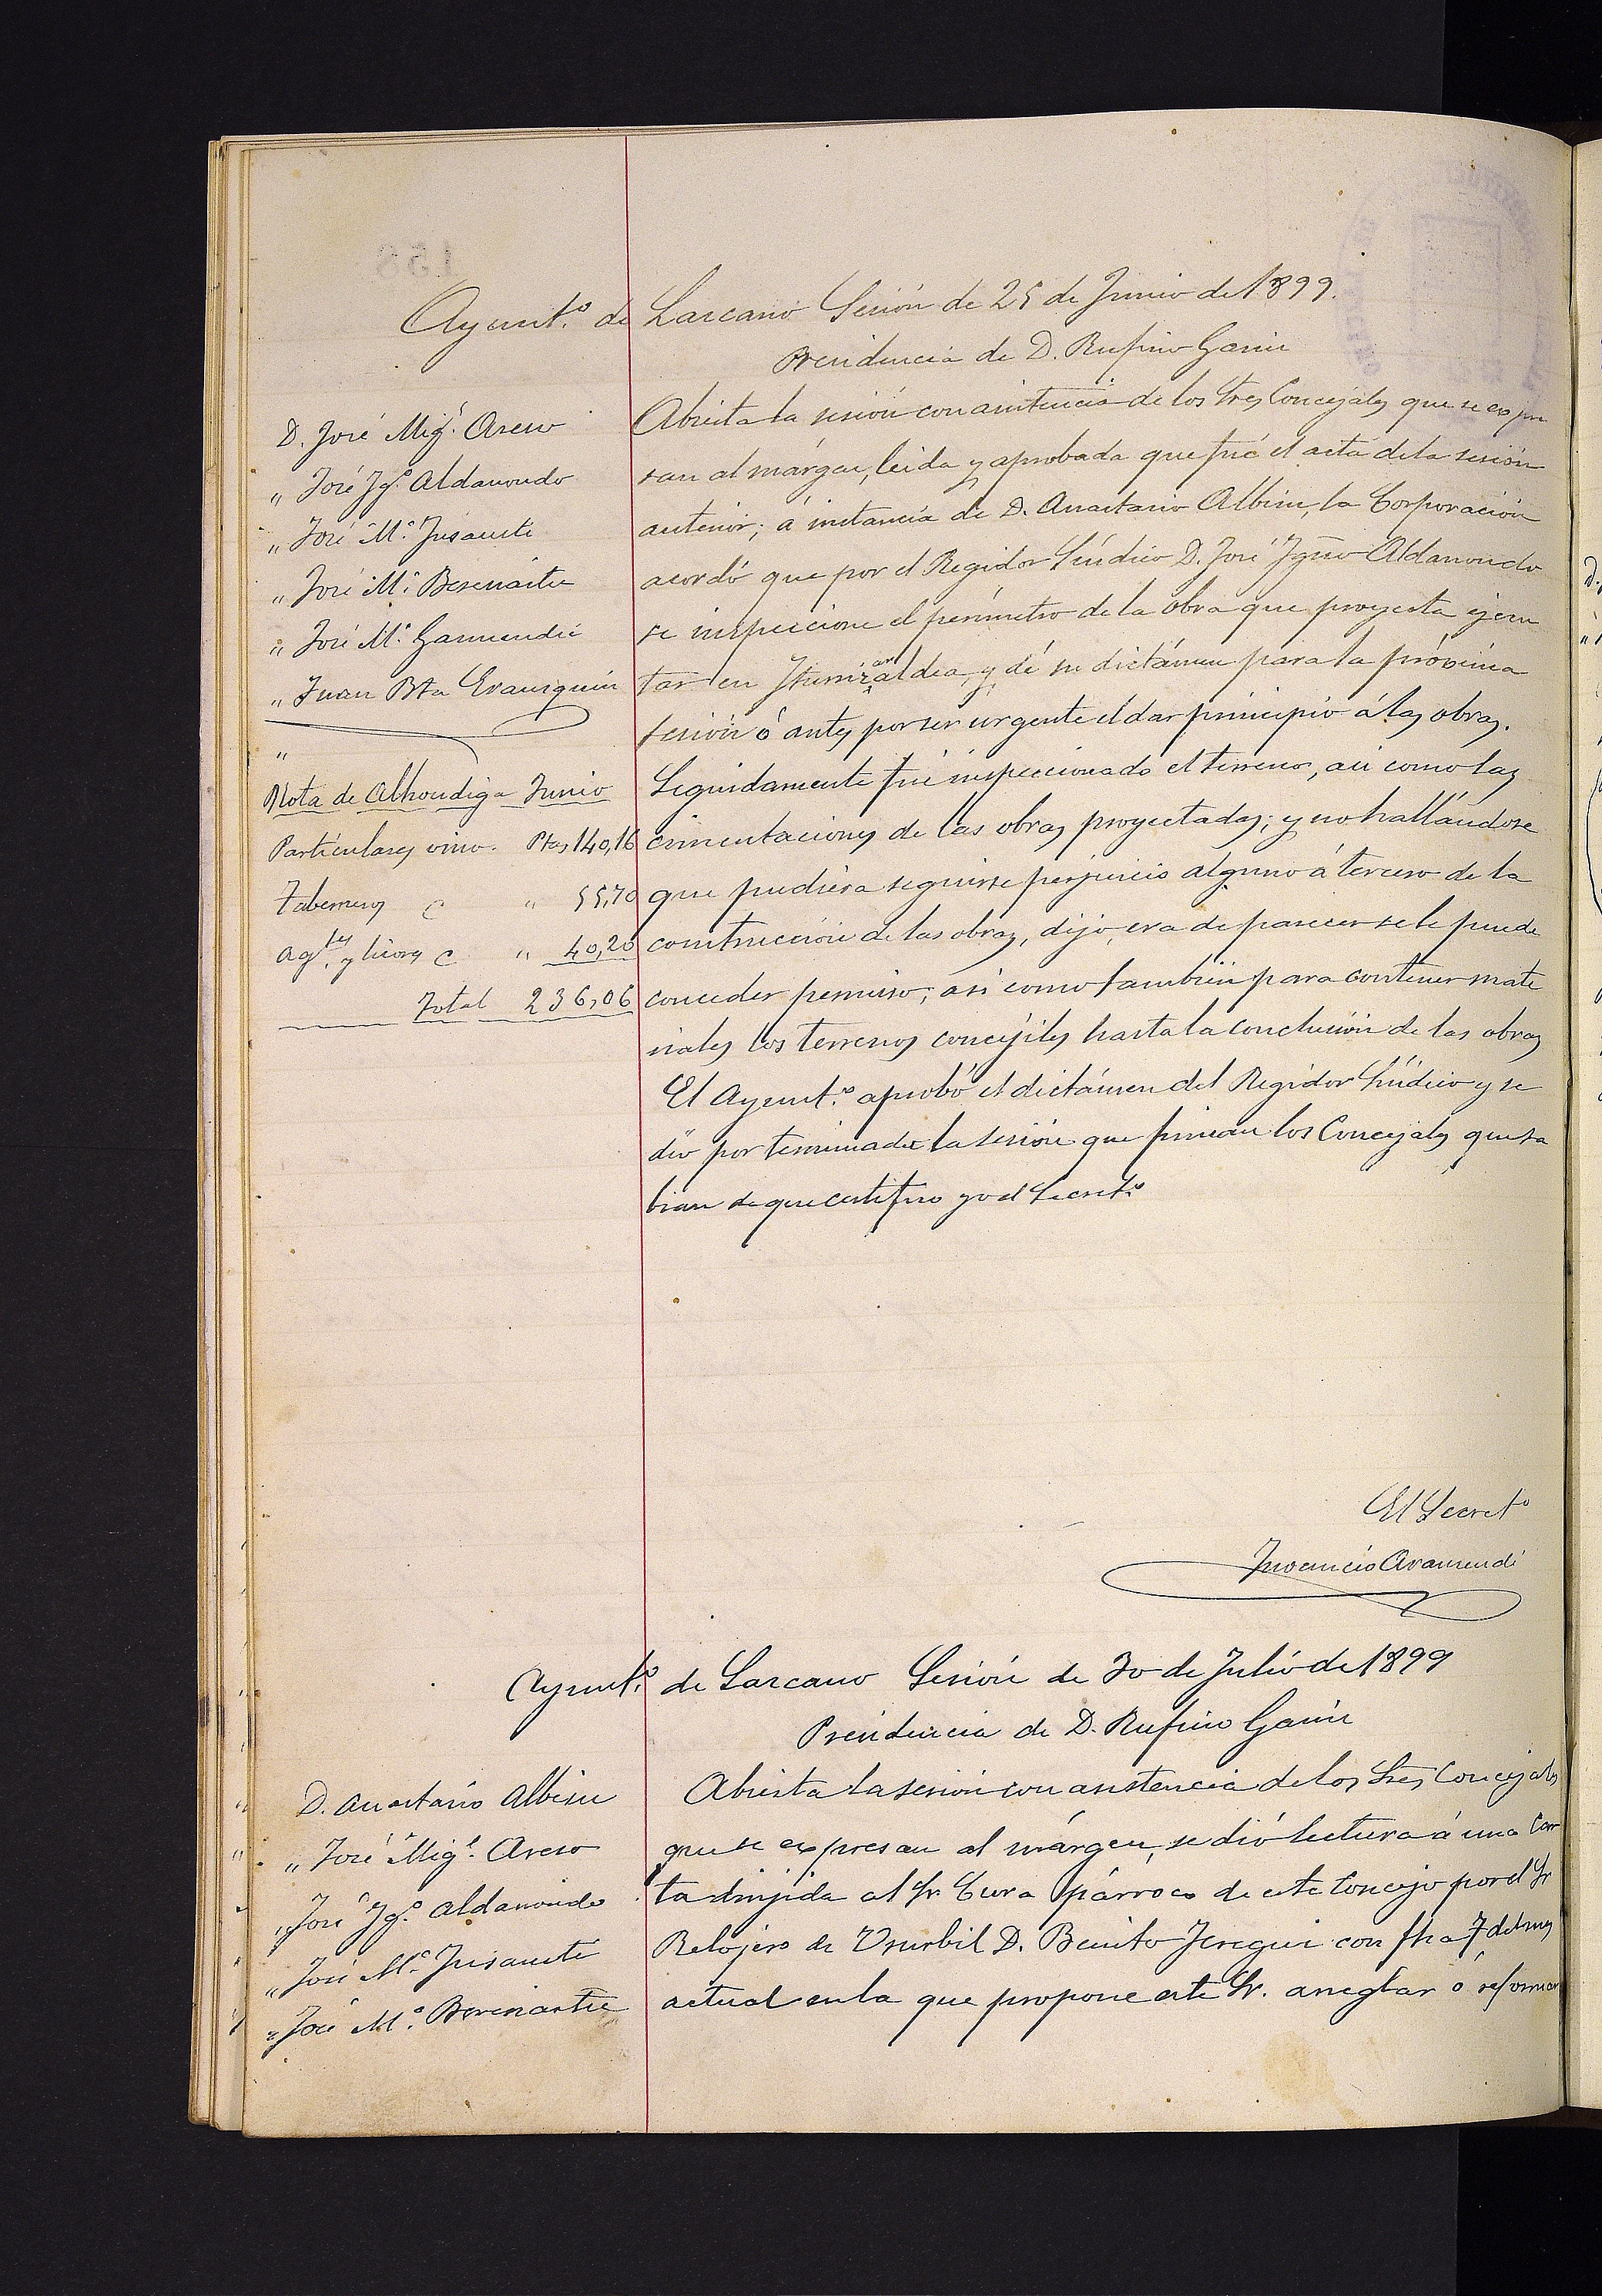 Ayunt.º de Lazcano Sesión de 25 de Junio de 1899.
Presidencia de D. Rufino Garin
D. José Mig.l Areso
" José Ig.º Aldanondo
" José M.ª Insausti
" José M.ª Besenartu
" José M.ª Garmendia
" Juan Bta Erausquin
"
Nota de Alhondiga Junio
Particulares vino. Ptas 140,16
Taberneros " 55,70
Ag.tes y licores " 40,20
Total 236,06
Abierta la sesión con asistencia de los Sres Concejales que se expre
san al márgen, leida y aprobada que fué el acta de la sesión
anterior; á instancia de D. Anastasio Albisu, la Corporación
acordó que por el Regidor Síndico D. José Ygnº Aldanondo
se inspeccione el perímetro de la obra que proyecta ejecu
tar en Yturrizaraldea, y dé su dictámen para la próxima
sesión ó antes por ser urgente el dar principio á las obras.
Seguidamente fué inspeccionado el terreno, así como las
cimentaciones de las obras proyectadas; y no hallándose
que pudiera seguirse perjuicio alguno á tercero de la
construcción de las obras, dijo, era de parecer se le puede
conceder permiso; así como también para contener mate
riales los terrenos concejiles hasta la conclusión de las obras
El Ayunt.º aprobó el dictámen del Regidor Síndico y se
dió por terminada la sesión que firman los Concejales que sa
bian de que certifico yo el Secretº
El Secretº
Inocencio Aramendi
Ayunt.º de Lazcano Sesión de 30 de Julio de 1899
Presidencia de D. Rufino Garin
D. Anastasio Albisu
" José Mig.l Areso
" José Ig.º Aldanondo
" José M.ª Insausti
" José M.ª Besenartu
Abierta la sesión con asistencia de los Sres Concejales
que se expresan al márgen, se dió lectura á una Car
ta dirijida al Sr Cura párroco de este Concejo por el Sr
Relojero de Usurbil D. Benito Jeregui con fha 7 del mes
actual en la que propone este Sr. arreglar ó reformar